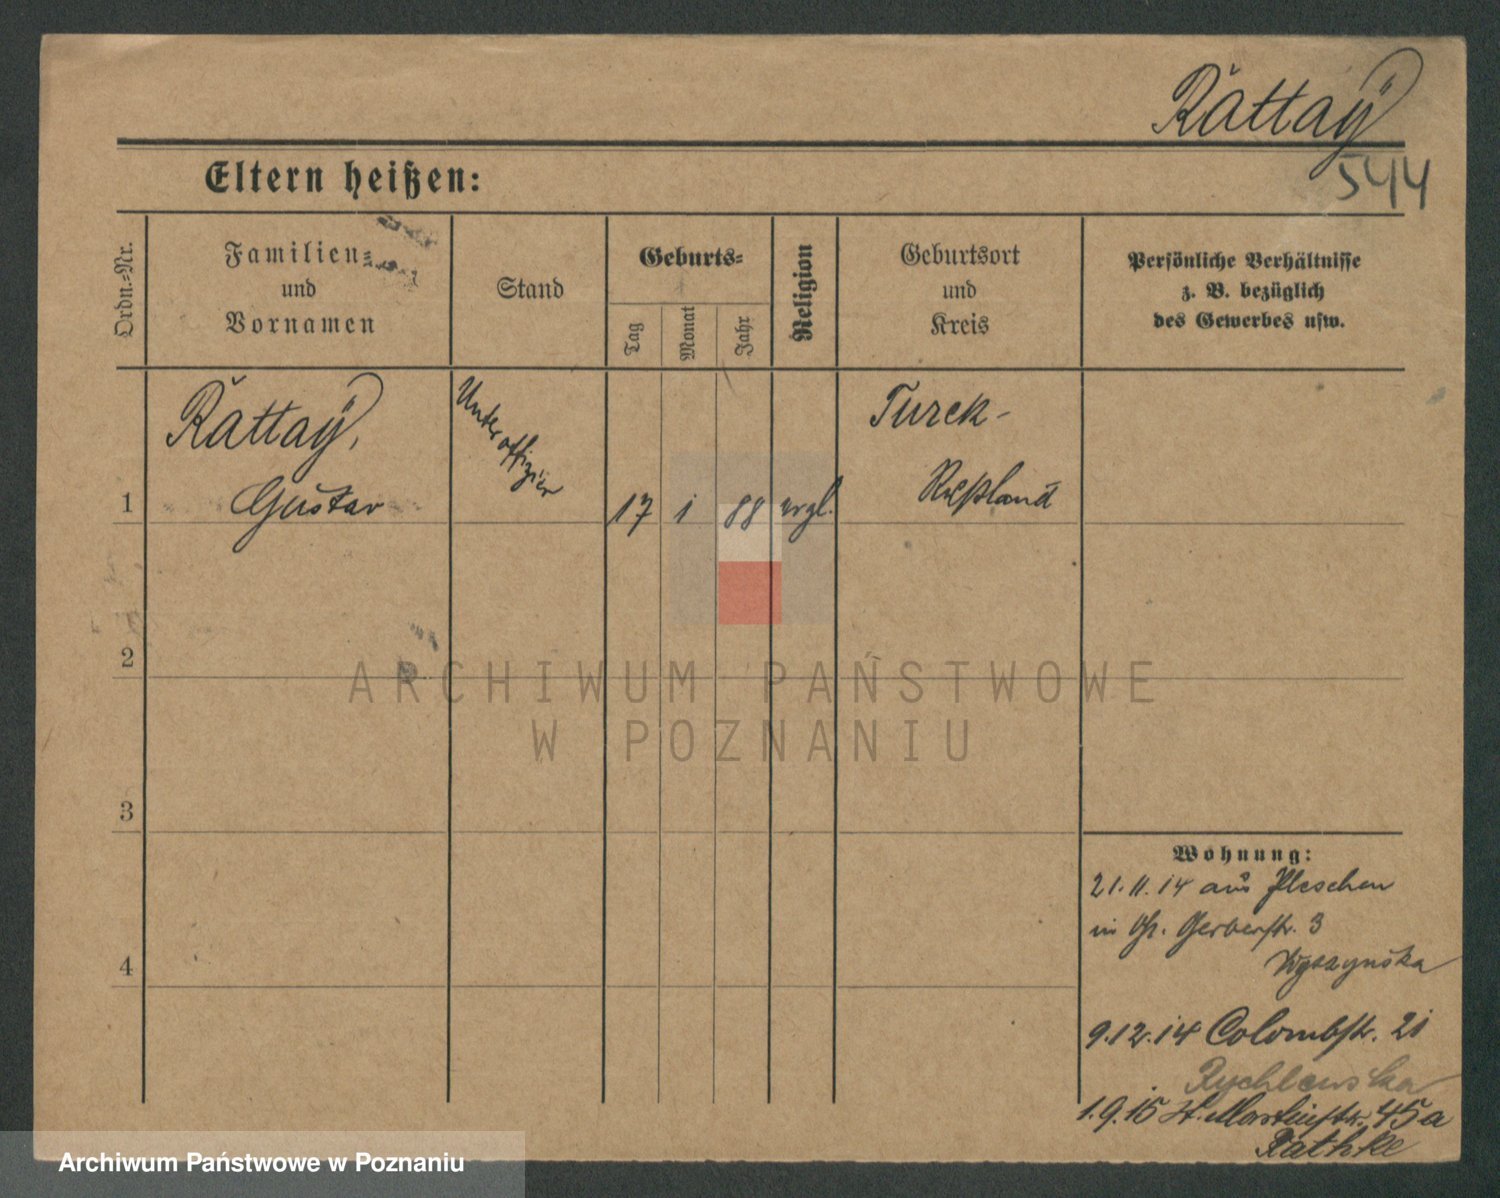 Rattaÿ
544
Eltern heißen:
Ordn.-Nr.
Familien-
und
Vornamen
Stand
Geburts-
Tag
Monat
Jahr
Religion
Geburtsort
und
Kreis
Persönliche Verhältnisse
z. B. bezüglich
des Gewerbes usw.
1
Rattaÿ,
Gustav
Unteroffizier
17
1
88
evgl.
Turek-
Rußland
2
3
4
Wohnung:
21.11.14 aus Pleschen
in Gr. Gerberstr. 3
Wyszynska
9.12.14 Colombstr. 21
Rychlewska
1.9.15 St. Martinstr. 45a
Rathke
ARCHIWUM PAŃSTWOWE
W POZNANIU
Archiwum Państwowe w Poznaniu